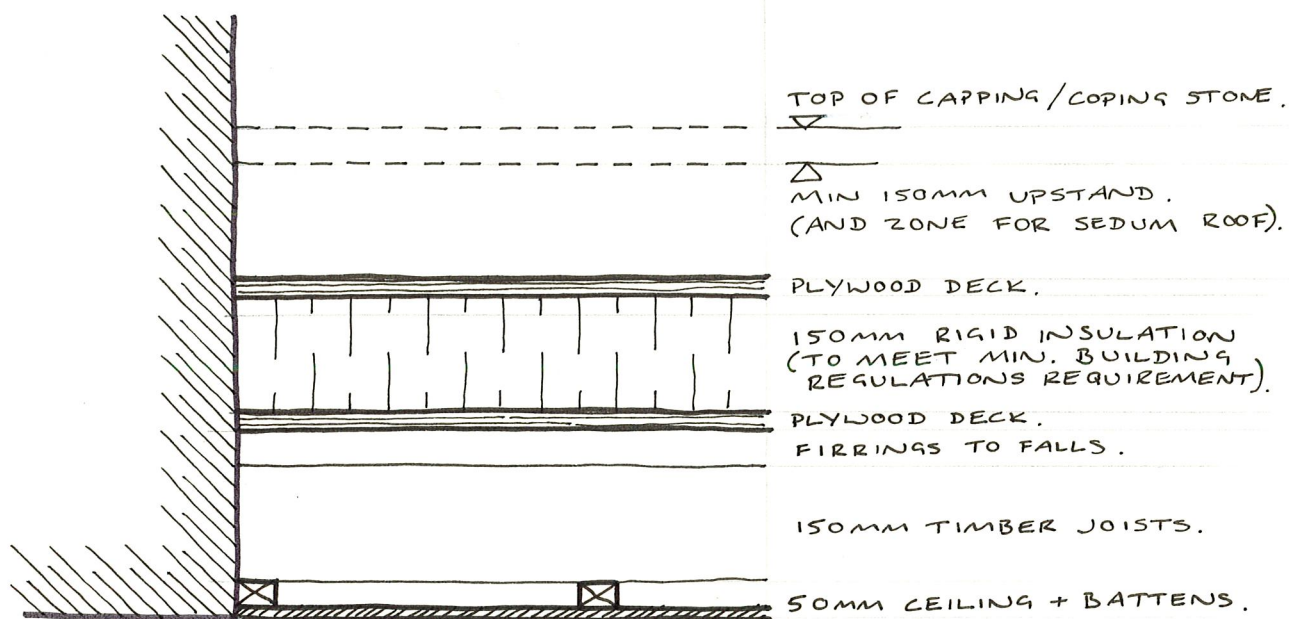 TOP OF CAPPING/COPING STONE.
MIN 150MM UPSTAND.
(AND ZONE FOR SEDUM ROOF).
PLYWOOD DECK.
150MM RIGID INSULATION
(TO MEET MIN. BUILDING
REGULATIONS REQUIREMENT).
PLYWOOD DECK.
FIRRINGS TO FALLS.
150MM TIMBER JOISTS.
50MM CEILING + BATTENS.